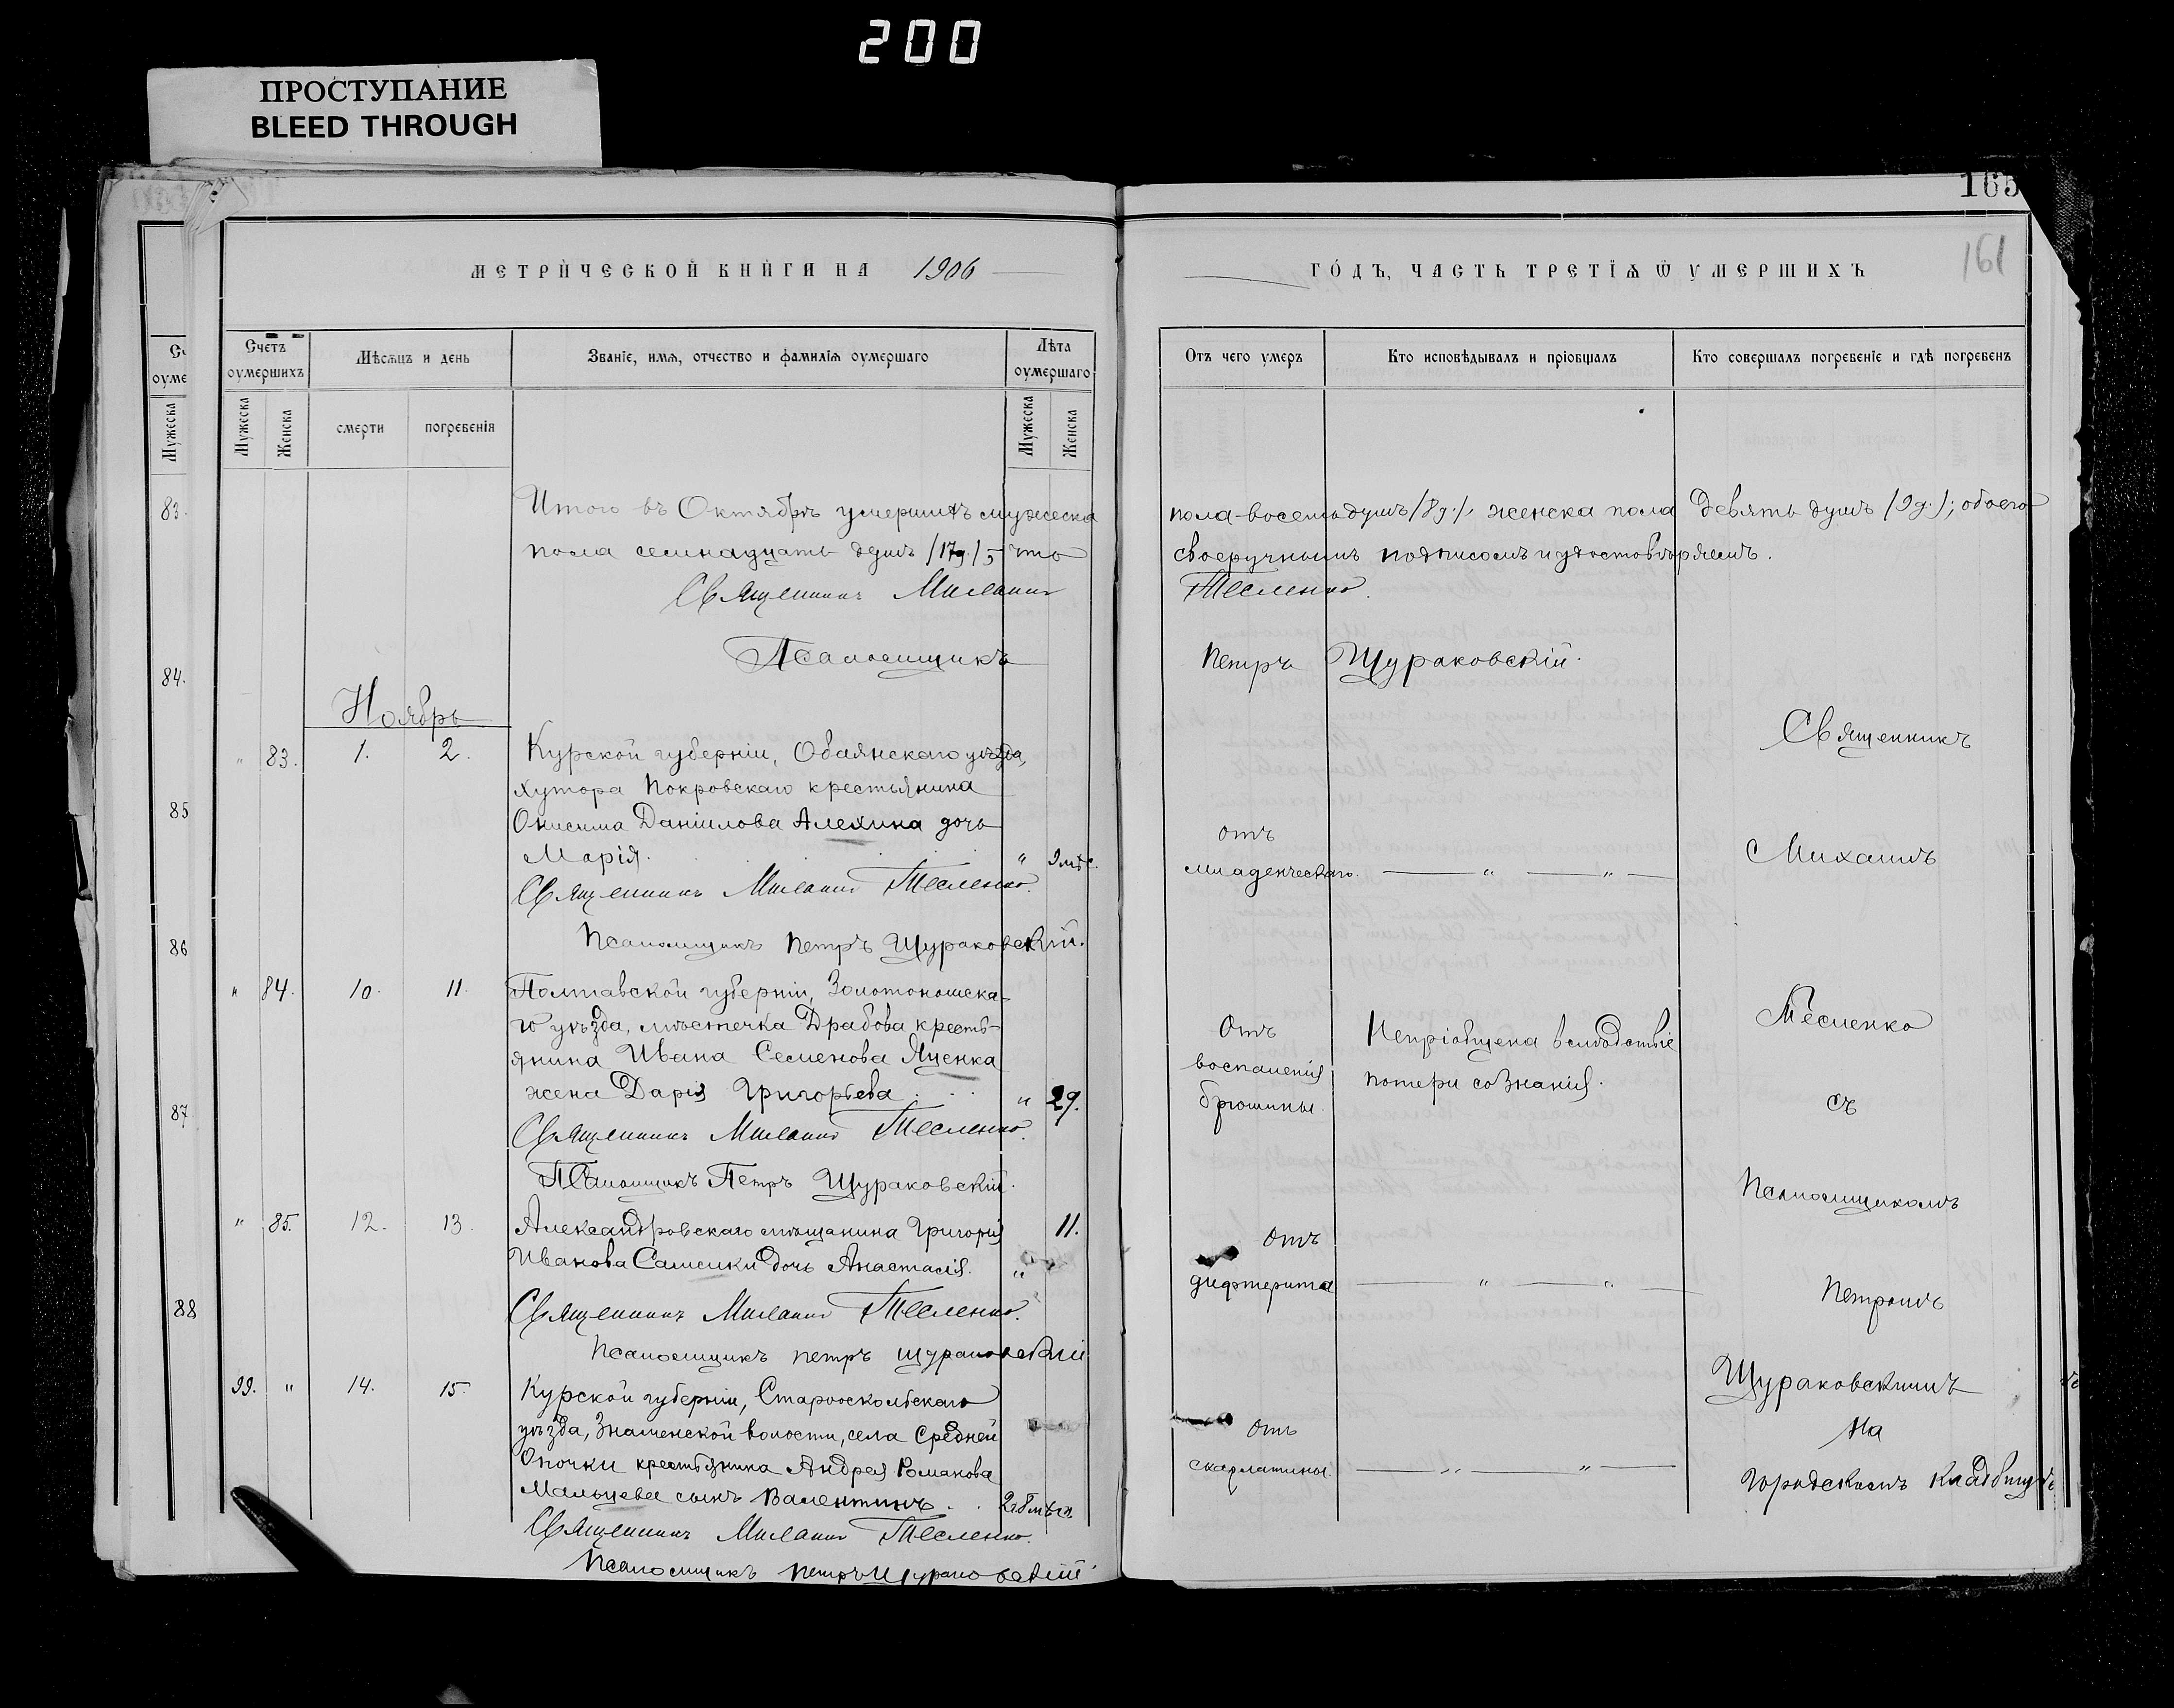 200
ПРОСТУПАНИЕ
BLEED THROUGH
165
161
МЕТРИЧЕСКОЙ КНИГИ НА 1906
ГОДЪ, ЧАСТЬ ТРЕТІЯ Ѿ УМЕРШИХЪ
Счетъ оумершихъ
Мѣсяцъ и день
Званіе, имя, отчество и фамилія оумершаго
Лѣта оумершаго
Отъ чего умеръ
Кто исповѣдывалъ и пріобщалъ
Кто совершалъ погребеніе и гдѣ погребенъ
Мужеска
Женска
смерти
погребенія
Мужеска
Женска
Итого въ Октябрѣ умершихъ мужеска пола-восемь душъ (8 д.), женска пола девять душъ (9 д.); обоего
пола семнадцать душъ (17 д.), что своеручнымъ подписомъ и удостовѣряемъ.
Священникъ Михаилъ Тесленко.
Псаломщикъ Петръ Щураковскій.
Ноябрь
" 83. 1. 2. Курской губерніи, Обаянскаго уѣзда,
хутора Покровскаго крестьянина
Онисима Даніилова Алехина дочь
Марія. " 9 мѣс.
отъ
младенческаго. " "
Священникъ Михаилъ Тесленко.
Псаломщикъ Петръ Щураковскій.
" 84. 10. 11. Полтавской губерніи, Золотоношска-
го уѣзда, мѣстечка Драбова кресть-
янина Ивана Семенова Яценка
жена Дарія Григорьева. " 29.
Отъ
воспаленія
брюшины.
Непріобщена вслѣдствіе
потери сознанія.
Священникъ Михаилъ Тесленко.
Псаломщикъ Петръ Щураковскій.
" 85. 12. 13. Александровскаго мѣщанина Григорія 11.
Иванова дочь Анастасія. "
отъ
дифтерита " "
Священникъ Михаилъ Тесленко.
Псаломщикъ Петръ Щураковскій
99. " 14. 15. Курской губерніи, Старооскольскаго
уѣзда, Знаменской волости, села Средней
Опочки крестьянина Андрея Романова
Мальцева сынъ Валентинъ.
отъ
скарлатины. " "
Священникъ Михаилъ Тесленко.
Псаломщикъ Петръ Щураковскій
Священникъ
Михаилъ
Тесленко
съ
Псаломщикомъ
Петромъ
Щураковскимъ
на
городскомъ кладбищѣ
Мужеска
83.
84.
85
86
87
88